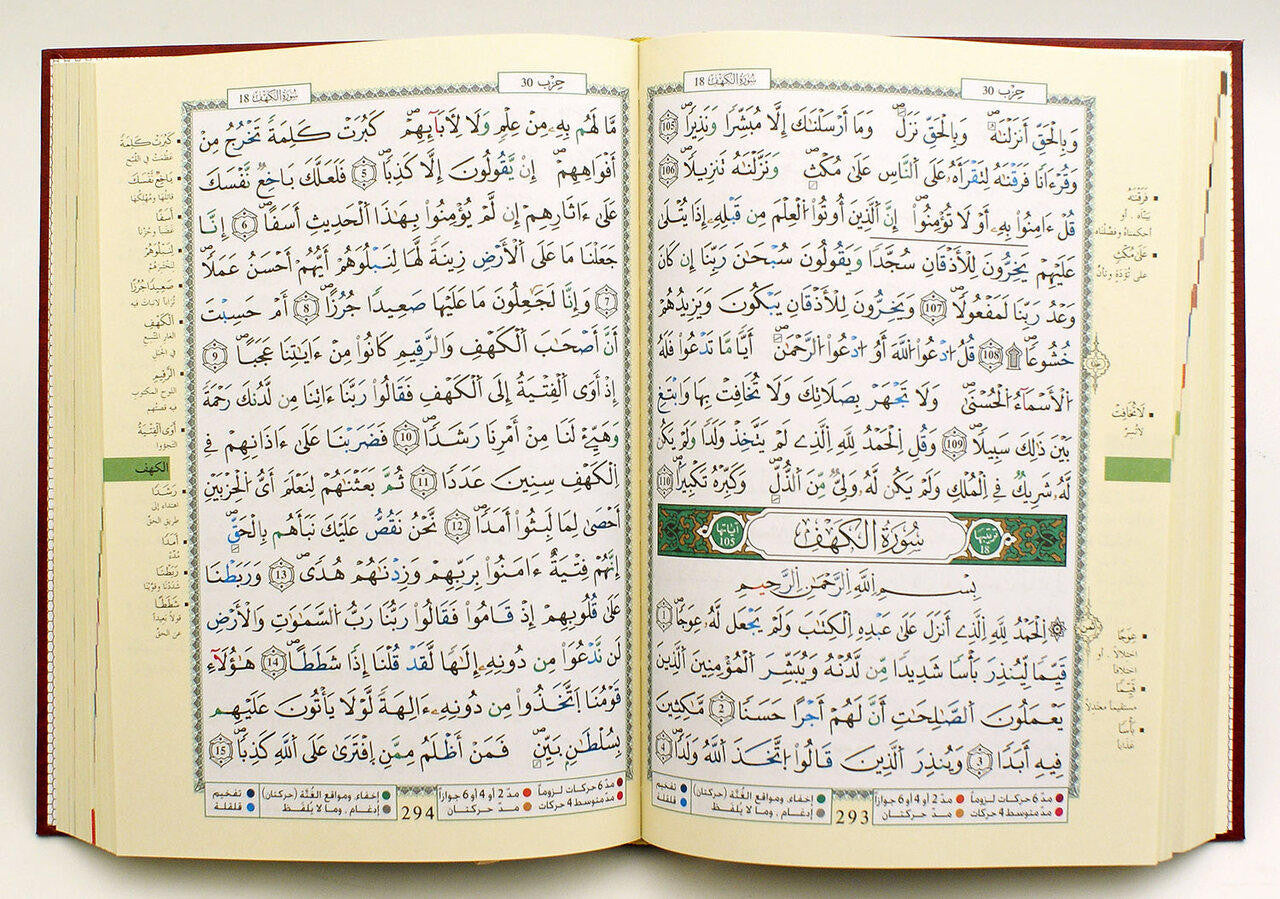 سُورَةُ الكَهْفِ 18
حِزْب 30
وَبِالْحَقِّ أَنزَلْنَٰهُ وَبِالْحَقِّ نَزَلَ وَمَا أَرْسَلْنَٰكَ إِلَّا مُبَشِّرًا وَنَذِيرًا 105
وَقُرْءَانًا فَرَقْنَٰهُ لِتَقْرَأَهُۥ عَلَى النَّاسِ عَلَىٰ مُكْثٍ وَنَزَّلْنَٰهُ تَنزِيلًا 106
قُلْ ءَامِنُوا۟ بِهِۦ أَوْ لَا تُؤْمِنُوا۟ إِنَّ الَّذِينَ أُوتُوا۟ الْعِلْمَ مِن قَبْلِهِۦ إِذَا يُتْلَىٰ
عَلَيْهِمْ يَخِرُّونَ لِلْأَذْقَانِ سُجَّدًا وَيَقُولُونَ سُبْحَٰنَ رَبِّنَا إِن كَانَ
وَعْدُ رَبِّنَا لَمَفْعُولًا 107 وَيَخِرُّونَ لِلْأَذْقَانِ يَبْكُونَ وَيَزِيدُهُمْ
خُشُوعًا ۩ 108 قُلُ ادْعُوا۟ اللَّهَ أَوُ ادْعُوا۟ الرَّحْمَٰنَ أَيًّا مَّا تَدْعُوا۟ فَلَهُ
الْأَسْمَآءُ الْحُسْنَىٰ وَلَا تَجْهَرْ بِصَلَاتِكَ وَلَا تُخَافِتْ بِهَا وَابْتَغِ
بَيْنَ ذَٰلِكَ سَبِيلًا 109 وَقُلِ الْحَمْدُ لِلَّهِ الَّذِے لَمْ يَتَّخِذْ وَلَدًا وَلَمْ يَكُن
لَّهُۥ شَرِيكٌ فِے الْمُلْكِ وَلَمْ يَكُن لَّهُۥ وَلِيٌّ مِّنَ الذُّلِّ وَكَبِّرْهُ تَكْبِيرًا 110
ترتيبها 18
سُورَةُ الكَهْفِ
آياتها 105
بِسْمِ اللَّهِ الرَّحْمَٰنِ الرَّحِيمِ
۞ الْحَمْدُ لِلَّهِ الَّذِے أَنزَلَ عَلَىٰ عَبْدِهِ الْكِتَٰبَ وَلَمْ يَجْعَل لَّهُۥ عِوَجًا 1
قَيِّمًا لِّيُنذِرَ بَأْسًا شَدِيدًا مِّن لَّدُنْهُ وَيُبَشِّرَ الْمُؤْمِنِينَ الَّذِينَ
يَعْمَلُونَ الصَّٰلِحَٰتِ أَنَّ لَهُمْ أَجْرًا حَسَنًا 2 مَّٰكِثِينَ
فِيهِ أَبَدًا 3 وَيُنذِرَ الَّذِينَ قَالُوا۟ اتَّخَذَ اللَّهُ وَلَدًا 4
فَرَقْنَٰهُ
بيّناه . أو
أحكمناه وفصّلناه
عَلَىٰ مُكْثٍ
على تُؤَدَةٍ وتأنٍّ
لَا تُخَافِتْ
لا تُسِرَّ
عِوَجًا
اختلالا . أو
اختلافا
قَيِّمًا
مستقيما معتدلا
بَأْسًا
عذابا
مدّ 6 حركات لزوماً
مدّ 2 أو 4 أو 6 جوازاً
مدّ متوسط 4 حركات
مدّ حركتان
293
إخفاء، ومواقع الغُنَّة (حركتان)
إدغام . وما لا يُلفَظ
تفخيم
قلقلة
حِزْب 30
سُورَةُ الكَهْفِ 18
مَّا لَهُم بِهِۦ مِنْ عِلْمٍ وَلَا لِأٓبَآئِهِمْ كَبُرَتْ كَلِمَةً تَخْرُجُ مِنْ
أَفْوَاهِهِمْ إِنْ يَّقُولُونَ إِلَّا كَذِبًا 5 فَلَعَلَّكَ بَاخِعٌ نَّفْسَكَ
عَلَىٰ ءَاثَارِهِمْ إِن لَّمْ يُؤْمِنُوا۟ بِهَٰذَا الْحَدِيثِ أَسَفًا 6 إِنَّا
جَعَلْنَا مَا عَلَى الْأَرْضِ زِينَةً لَّهَا لِنَبْلُوَهُمْ أَيُّهُمْ أَحْسَنُ عَمَلًا
7 وَإِنَّا لَجَٰعِلُونَ مَا عَلَيْهَا صَعِيدًا جُرُزًا 8 أَمْ حَسِبْتَ
أَنَّ أَصْحَٰبَ الْكَهْفِ وَالرَّقِيمِ كَانُوا۟ مِنْ ءَايَٰتِنَا عَجَبًا 9
إِذْ أَوَى الْفِتْيَةُ إِلَى الْكَهْفِ فَقَالُوا۟ رَبَّنَا ءَاتِنَا مِن لَّدُنكَ رَحْمَةً
وَهَيِّئْ لَنَا مِنْ أَمْرِنَا رَشَدًا 10 فَضَرَبْنَا عَلَىٰ ءَاذَانِهِمْ فِے
الْكَهْفِ سِنِينَ عَدَدًا 11 ثُمَّ بَعَثْنَٰهُمْ لِنَعْلَمَ أَيُّ الْحِزْبَيْنِ
أَحْصَىٰ لِمَا لَبِثُوا۟ أَمَدًا 12 نَّحْنُ نَقُصُّ عَلَيْكَ نَبَأَهُم بِالْحَقِّ
إِنَّهُمْ فِتْيَةٌ ءَامَنُوا۟ بِرَبِّهِمْ وَزِدْنَٰهُمْ هُدًى 13 وَرَبَطْنَا
عَلَىٰ قُلُوبِهِمْ إِذْ قَامُوا۟ فَقَالُوا۟ رَبُّنَا رَبُّ السَّمَٰوَٰتِ وَالْأَرْضِ
لَن نَّدْعُوَا۟ مِن دُونِهِۦ إِلَٰهًا لَّقَدْ قُلْنَا إِذًا شَطَطًا 14 هَٰؤُلَآءِ
قَوْمُنَا اتَّخَذُوا۟ مِن دُونِهِۦ ءَالِهَةً لَّوْلَا يَأْتُونَ عَلَيْهِم
بِسُلْطَٰنٍ بَيِّنٍ فَمَنْ أَظْلَمُ مِمَّنِ افْتَرَىٰ عَلَى اللَّهِ كَذِبًا 15
كَبُرَتْ كَلِمَةً
عظمت في القبح
بَاخِعٌ نَّفْسَكَ
قاتلها ومُهلكها
أَسَفًا
غضبا وحُزنا
لِنَبْلُوَهُمْ
لنختبرهم
صَعِيدًا جُرُزًا
تُرابا لا نبات فيه
الْكَهْفِ
الغار المتّسع
في الجبل
الرَّقِيمِ
اللوح المكتوب
فيه قصتهم
أَوَى الْفِتْيَةُ
التجؤوا
الكهف
رَشَدًا
اهتداء إلى
طريق الحقّ
أَمَدًا
مُدّة
رَبَطْنَا
شددنا وقوّينا
شَطَطًا
قولا بعيدا
عن الحقّ
مدّ 6 حركات لزوماً
مدّ 2 أو 4 أو 6 جوازاً
مدّ متوسط 4 حركات
مدّ حركتان
294
إخفاء، ومواقع الغُنَّة (حركتان)
إدغام . وما لا يُلفَظ
تفخيم
قلقلة